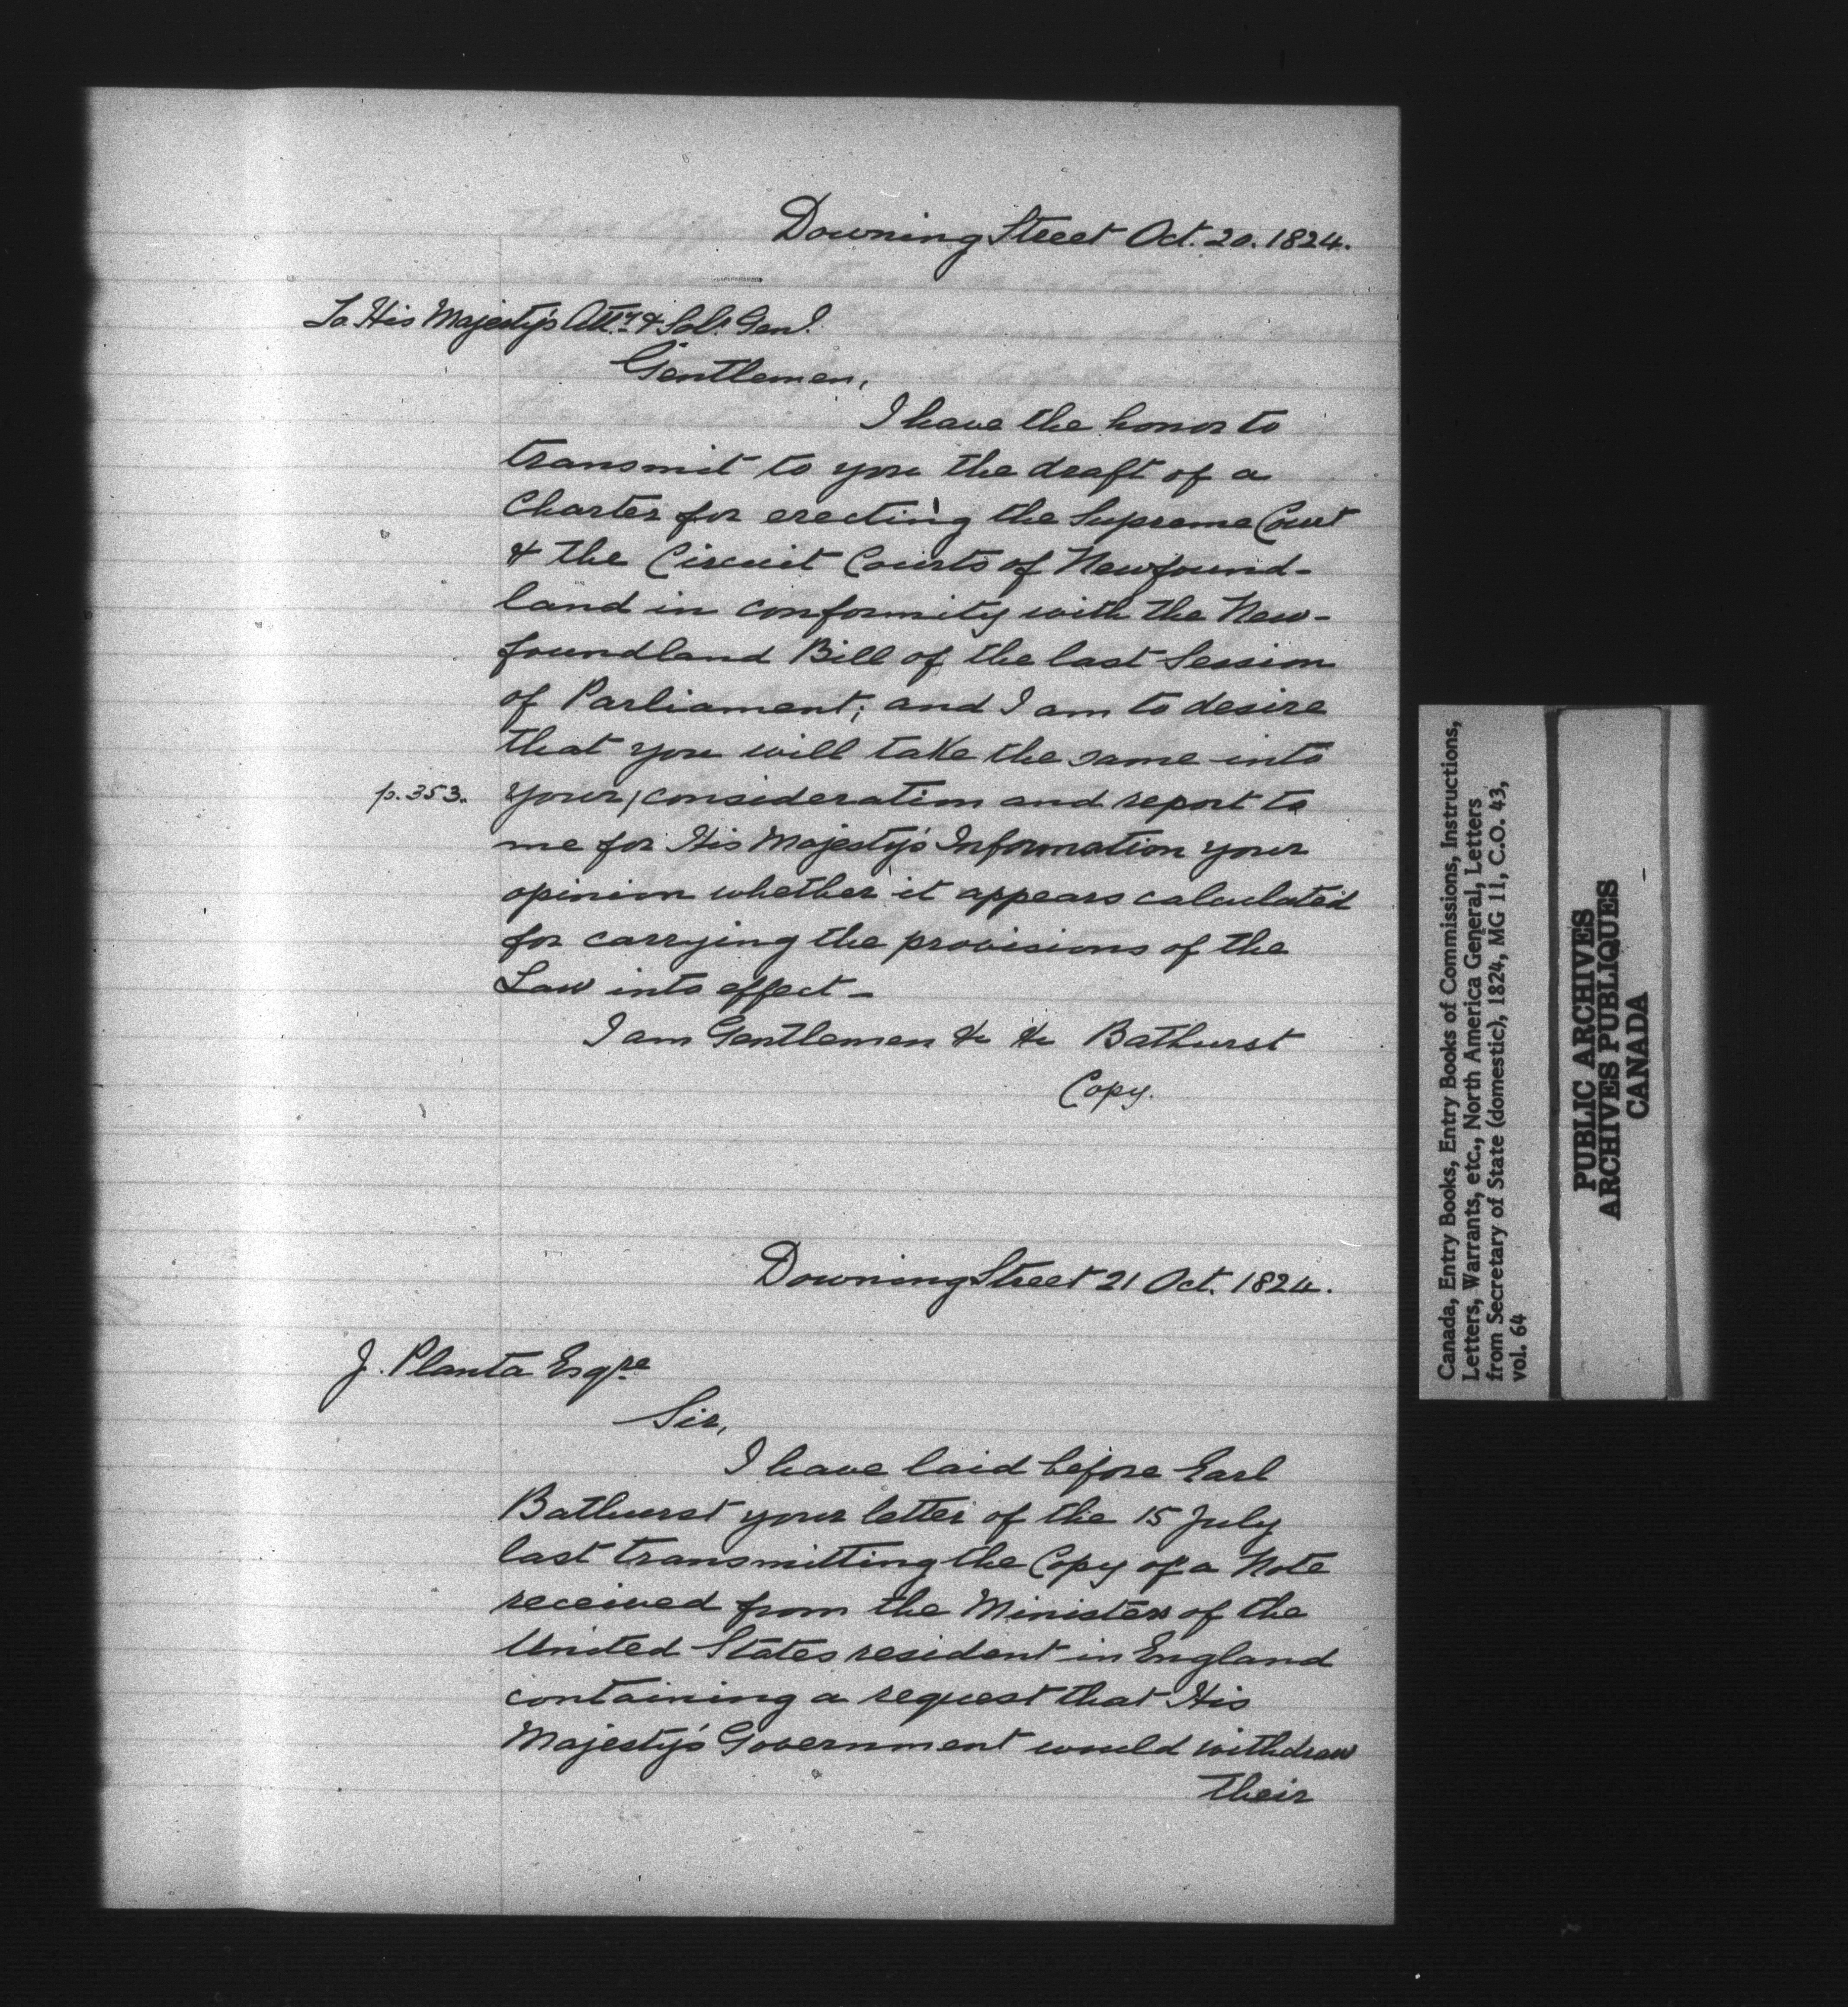 Downing Street Oct. 20. 1824.
To His Majesty's Atty. & Solr. Genl.
Gentlemen,
I have the honor to
transmit to you the draft of a
Charter for erecting the Supreme Court
& the Circuit Courts of Newfound-
land in conformity with the New-
foundland Bill of the last Session
of Parliament; and I am to desire
that you will take the same into
p. 353. your / consideration and report to
me for His Majesty's Information your
opinion whether it appears calculated
for carrying the provisions of the
Law into effect -
I am Gentlemen &c &c Bathurst
Copy.
Downing Street 21 Oct. 1824.
J. Planta Esqre
Sir,
I have laid before Earl
Bathurst your letter of the 15 July
last transmitting the Copy of a Note
received from the Minister of the
United States resident in England
containing a request that His
Majesty's Government would withdraw
their
Canada, Entry Books, Entry Books of Commissions, Instructions,
Letters, Warrants, etc., North America General, Letters
from Secretary of State (domestic), 1824, MG 11, C.O. 43,
vol. 64
PUBLIC ARCHIVES
ARCHIVES PUBLIQUES
CANADA